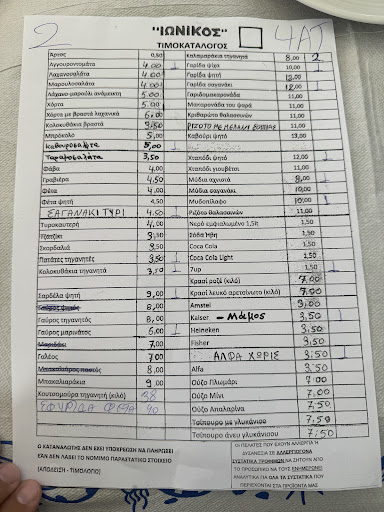 2
"ΙΩΝΙΚΟΣ"
4ΑΤ
ΤΙΜΟΚΑΤΑΛΟΓΟΣ
Άρτος 0,50
Αγγουροντομάτα 4.00 1
Λαχανοσαλάτα 4.00
Μαρουλοσαλάτα 4.00
Λάχανο-μαρούλι ανάμεικτη 5.00
Χόρτα 5.00
Χόρτα με βραστά λαχανικά 6.00
Κολοκυθάκια βραστά 3.50
Μπρόκολο 5,00
Καβουροσαλάτα 5,00
Ταραμοσαλάτα 3,50
Φάβα 4,00
Γραβιέρα 4,50
Φέτα 4,00
Φέτα ψητή 4,50
ΣΑΓΑΝΑΚΙ ΤΥΡΙ 4.50 1
Τυροκαυτερή 4,00
Τζατζίκι 3,50
Σκορδαλιά 3,50
Πατάτες τηγανητές 3,50 1
Κολοκυθάκια τηγανητά 3,50 1
Σαρδέλα ψητή 9,00 1
8,00
Γαύρος τηγανητός 8,00
Γαύρος μαρινάτος 6,00 1
7,00
Γαλέος 7,00
Μπακαλιάρος παστός 8,00
Μπακαλιαράκια 9,00
Κουτσομούρα τηγανητή (κιλό) 38
ΣΦΥΡΙΔΑ 90
Καλαμαράκια τηγανητά 8,00 2
Γαρίδα ψίχα 10,00 1
Γαρίδα ψητή 12,00
Γαρίδα σαγανάκι 12,00 1
Γαριδομακαρονάδα 11,00
Μακαρονάδα του ψαρά 11,00
Κριθαρώτο θαλασσινών 11,00
ΡΙΖΟΤΟ ΜΕ ΜΕΛΑΝΙ ΣΟΥΠΙΑΣ 11,00
Καβούρι ψητό 13,00
Χταπόδι ψητό 12,00 1
Χταπόδι γιουβέτσι 11,00
Μύδια αχνιστά 8,00 1
Μύδια σαγανάκι 10,00
Μυδοπίλαφο 10,00 1
Ριζότο θαλασσινών 11,00
Νερό εμφιαλωμένο 1,5lt 1,50
Σόδα Ήβη 1,50
Coca Cola 1,50
Coca Cola Light 1,50 1
7up 1,50 1
Κρασί ροζέ (κιλό) 7.00
Κρασί λευκό αρετσίνωτο (κιλό) 7.00
Amstel 3,00
Kaiser - Μάμος 3,50 1
Heineken 3,50
Fisher 3,50
ΑΛΦΑ ΧΩΡΙΣ 3,50 1
Alfa 3,50
Ούζο Πλωμάρι 7,00
Ούζο Μίνι 7,00
Ούζο Απαλαρίνα 7,50
Τσίπουρο με γλυκάνισο 7,50
Τσίπουρο άνευ γλυκάνισου 7,50
Ο ΚΑΤΑΝΑΛΩΤΗΣ ΔΕΝ ΕΧΕΙ ΥΠΟΧΡΕΩΣΗ ΝΑ ΠΛΗΡΩΣΕΙ
ΕΑΝ ΔΕΝ ΛΑΒΕΙ ΤΟ ΝΟΜΙΜΟ ΠΑΡΑΣΤΑΤΙΚΟ ΣΤΟΙΧΕΙΟ
(ΑΠΟΔΕΙΞΗ - ΤΙΜΟΛΟΓΙΟ)
ΟΙ ΠΕΛΑΤΕΣ ΠΟΥ ΕΧΟΥΝ ΑΛΛΕΡΓΙΑ Ή
ΔΥΣΑΝΕΞΙΑ ΣΕ ΑΛΛΕΡΓΙΟΓΟΝΑ
ΣΥΣΤΑΤΙΚΑ ΤΡΟΦΙΜΩΝ ΝΑ ΖΗΤΗΣΟΥΝ ΑΠΟ
ΤΟ ΠΡΟΣΩΠΙΚΟ ΝΑ ΤΟΥΣ ΕΝΗΜΕΡΩΣΕΙ
ΑΝΑΛΥΤΙΚΑ ΓΙΑ ΟΛΑ ΤΑ ΣΥΣΤΑΤΙΚΑ ΠΟΥ
ΠΕΡΙΕΧΟΝΤΑΙ ΣΤΑ ΠΡΟΪΟΝΤΑ ΜΑΣ